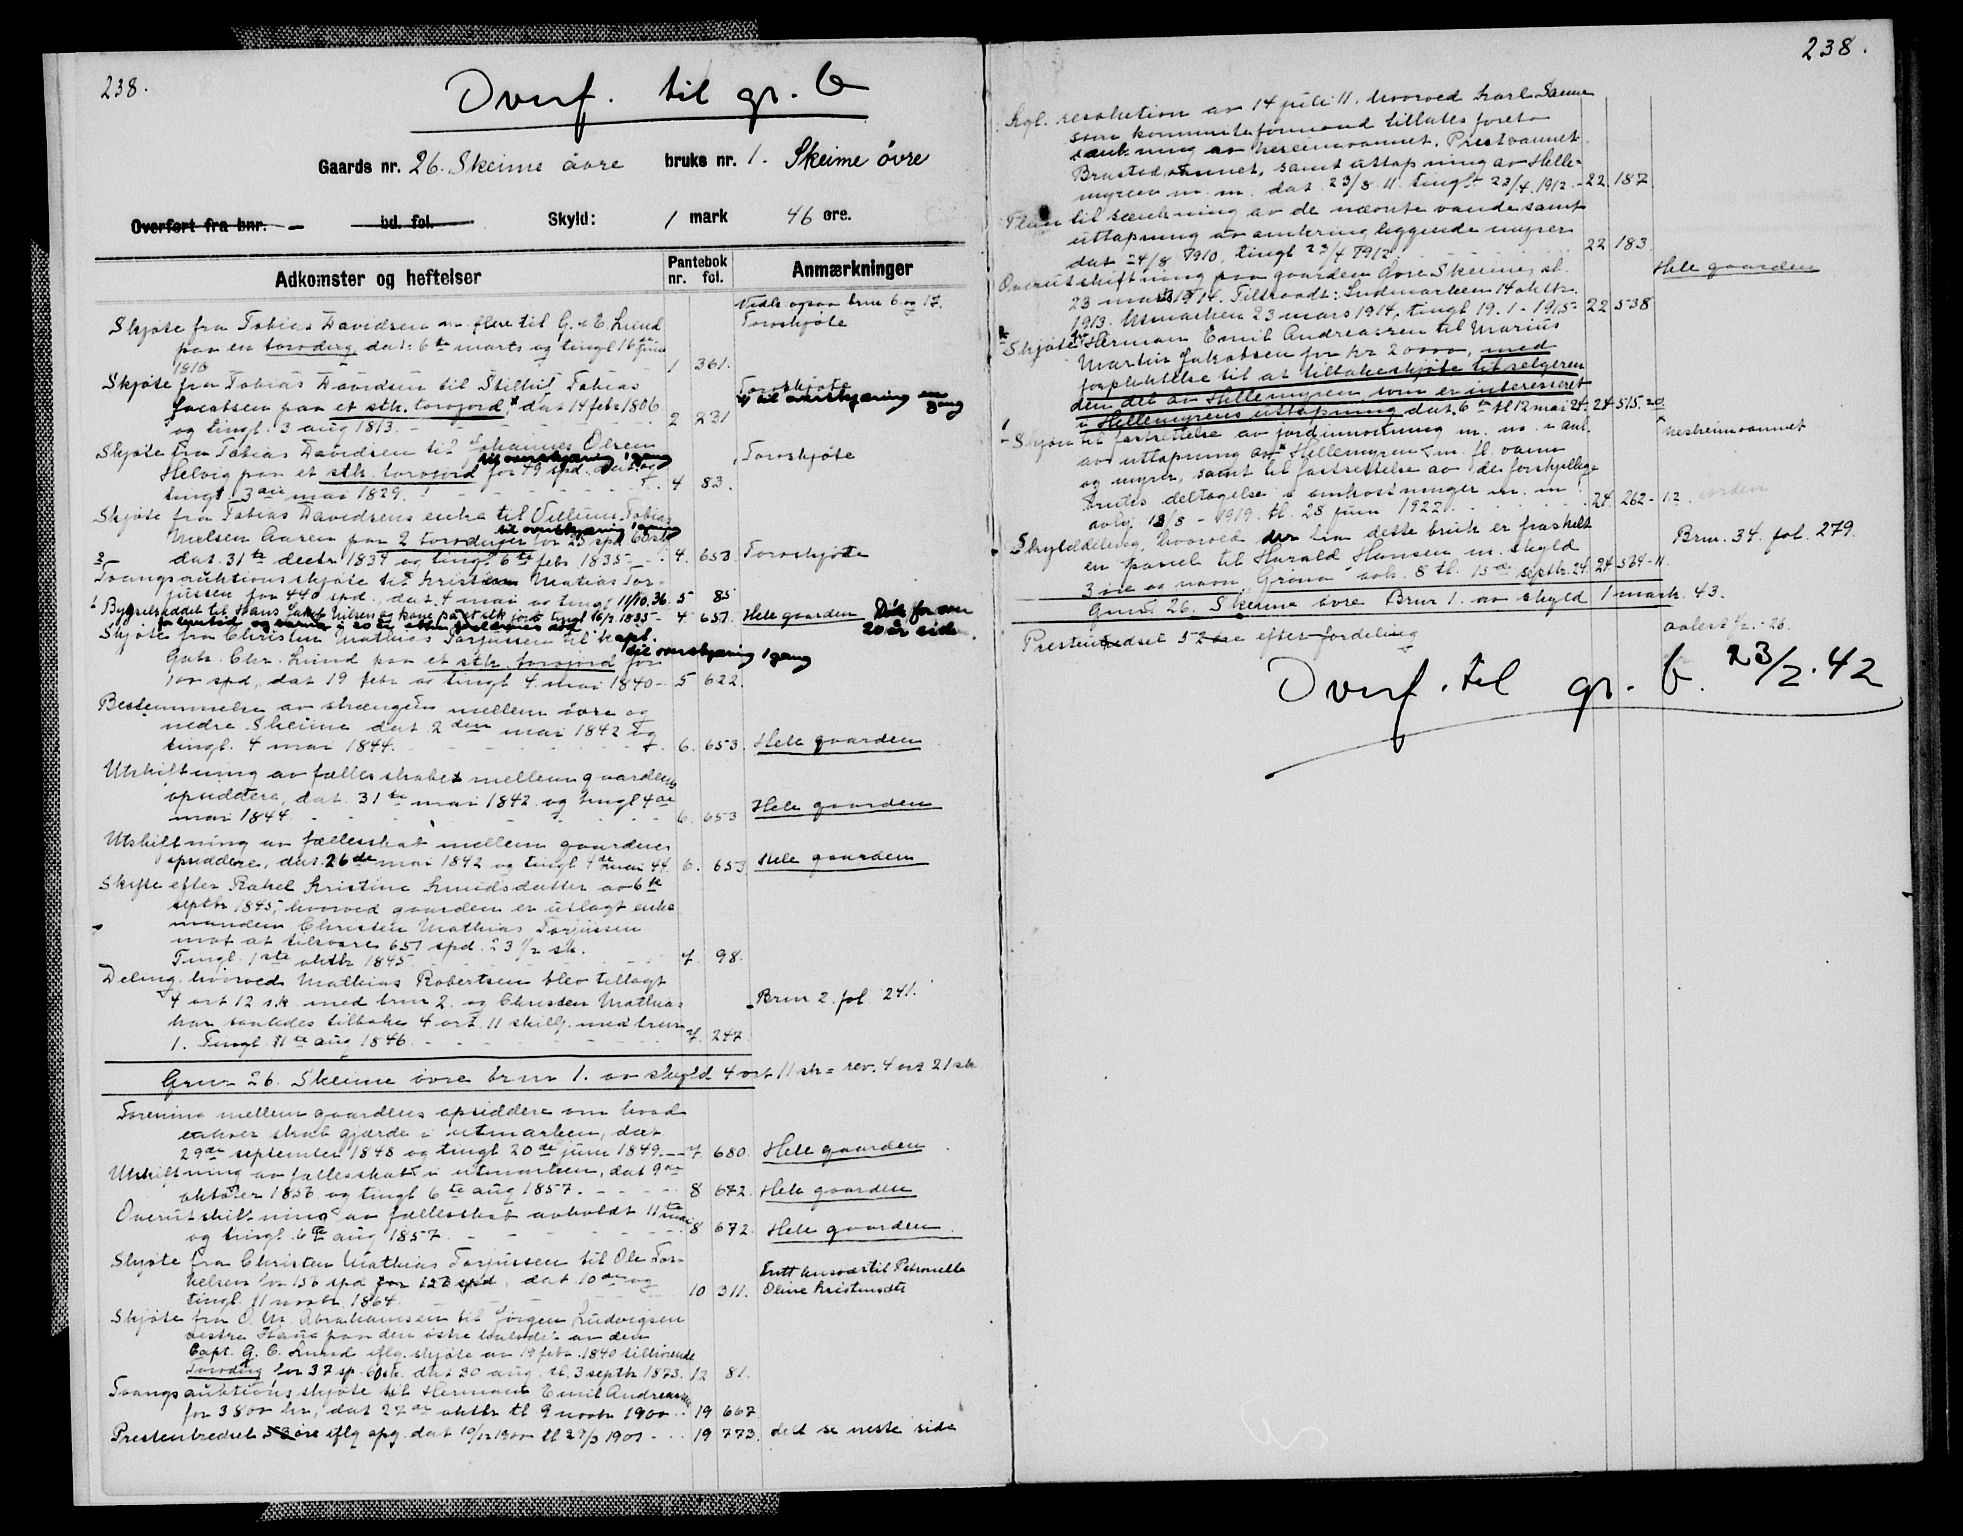 238.
Overf. til gr. b
Gaards nr. 26. Skeime övre bruks nr. 1. Skeime övre
Overført fra bnr. — bd. fol. Skyld: 1 mark 46 øre.
Adkomster og heftelser Pantebok nr. fol. Anmærkninger
Vedk. ogsaa brnr 6 og 17.
Skjøte fra Tobias Davidsen m. flere til G. C. Lund Torvskjöte
paa en torvdeig, dat. 6te marts og tingl 16de juni
1810 1 361.
Skjøte fra Tobias Davidsen til Tobias Torvskjöte
Jacobsen paa et stk. torvjord, dat 14 febr 1806 til overskjæring en gang
og tingl. 3 aug 1813. 2 231
Skjøte fra Tobias Davidsen til Johannes Olsen Torvskjöte
til overskjæring 1 gang
Helvig paa et stk. torvjord for 49 spd. dat og
tingl. 3die mai 1829. 4 83.
Skjøte fra Tobias Davidsens enke til Villum Tobias
til overskjæring 1 gang
Nielsen Aaren paa 2 torvdeiger for 25 spd 60 sk
dat. 31te decbr 1834 og tingl 6te febr 1835 4. 653. Torvskjöte
Tvangsauktionsskjøte til Kristian Matias Tor-
jussen for 440 spd., dat. 4 mai og tingl 11/10.36. 5 85
Bygselseddel til Hans Jakob Nilsen og kone på et stk jord tingl 16/2 1835 4 657. Hele gaarden Dök for mer
20 år siden
Skjøte fra Christen Mathias Torjussen til kapt.
til overskjæring 1 gang
Gabr. Chr. Lund paa et stk. torvjord for
100 spd, dat 19 febr og tingl 4. mai 1840 5 622.
Bestemmelse av strængen mellem övre og
nedre Skeime dat 2den mai 1842 og
tingl. 4 mai 1844. 6. 653. Hele gaarden
Utskiftning av fællesskabet mellem gaardens
opsiddere, dat. 31te mai 1842 og tingl 4de
mai 1844. 6. 653 Hele gaarden
Utskiftning av fællesskat mellem gaardens
opsiddere, dat. 26de mai 1842 og tingl 4de mai 44. 6. 653 Hele gaarden
Skifte efter Rakel Kristine Knudsdatter av 6te
septbr 1845, hvorved gaarden er utlagt enke
manden Christen Mathias Torjussen
mot at tilsvare 651 spd. 23 1/2 sk.
Tingl. 1ste oktbr 1845. 7 98.
Deling hvorved Mathias Robertsen blev tillagt
4 ort 12 sk. med brnr 2. og Christen Mathias Brnr 2. fol. 241.
har saaledes tilbake 4 ort. 11 skill. med brnr
1. Tingl. 11te aug 1846. 7. 247
Grnr 26. Skeime övre brnr 1. av skyld 4 ort 11 sk = rev. 4 ort 21 sk
Forening mellem gaardens opsiddere om hvad
enhver skal gjærde i utmarken, dat
29de september 1848 og tingl 20de juni 1849. 7 680. Hele gaarden
Utskiftning av fællesskab i utmarken, dat 9de
oktober 1856 og tingl 6te aug 1857. 8 672. Hele gaarden
Overutskiftning av fællesskat avholdt 11te mai
og tingl. 6te aug 1857. 8 672. Hele gaarden.
Skjøte fra Christen Mathias Torjussen til Ole Tor-
kelsen for 156 spd for 126 spd, dat 10de og Fritt husvær til Petronelle
tingl. 11 novbr. 1864. 10 311. Oline Kristensdtr
Skjøte fra O. M. Abrahamsen til Jörgen Ludvigsen
vestre Haus paa den östre halvdel av den
Capt. G. C. Lund iflg. skjøte av 19 febr. 1840 tilhörende
Torvdeig for 37 sp. 60 sk. dat 30 aug. tl. 3 septbr 1873. 12 81.
Tvangsauktionsskjøte til Herman Emil Andreassen
for 3800 kr, dat 27de oktbr tl 9 novbr 1900 19 667.
Prestenbredsel 52 øre iflg opg. dat 10/12 1900 tl 27/3 1901 19 773. delt se neste side
238.
Kgl. resolution av 14 juli 11. hvorved Karl Sanne
som kommiteformand tillates foreta
sænkning av Nesheimvannet, Prestvannet
Brastadvannet, samt uttapning av Helle-
myren m. m. dat. 23/8 11. tingl. 23/4. 1912. 22. 187.
Plan til sænkning av de nævnte vande samt
uttapning av omkringliggende myrer
dat 24/8 1910, tingl 23/4 1912. 22 183.
Overutskiftning paa gaarden övre Skeime, sl. Hele gaarden
23 marts 1914. Tiltraadt: Indmarken 14 oktbr.
1913. Utmarken 23 mars 1914, tingl 19. 1 - 1915 22 538
Skjöte fra Herman Emil Andreassen til Marius
Martin Jakobsen for kr 2000, med
forpliktelse til at tilbakeskjöte til selgeren
den del av Hellemyren som er interesseret
i Hellemyrens uttapning dat. 6te tl 12 mai 24. 24 515. 20
Skjøn til fastsettelse av jordinnvinning m. m. i anl. Nesheimvannet
av uttapning av Hellemyren m. fl. vann
og myrer, samt til fastsettelse av de forskjellige
bruks deltagelse i omkostninger m. m
avhj. 18/8 - 1919. tl. 28 juni 1922. 24. 262 - 12.
Skylddeling, hvorved der fra dette bruk er fraskilt
en parcel til Harald Hansen m. skyld Brnr. 34. fol. 279.
3 øre og navn Gröna avh. 8 tl. 15de septbr. 24. 24 564 - 11.
Gnr. 26. Skeime övre Brnr 1. av skyld 1 mark. 43.
Prestenbredsel 52 øre efter fordeling
Overf. til gr. b. 23/2. 42